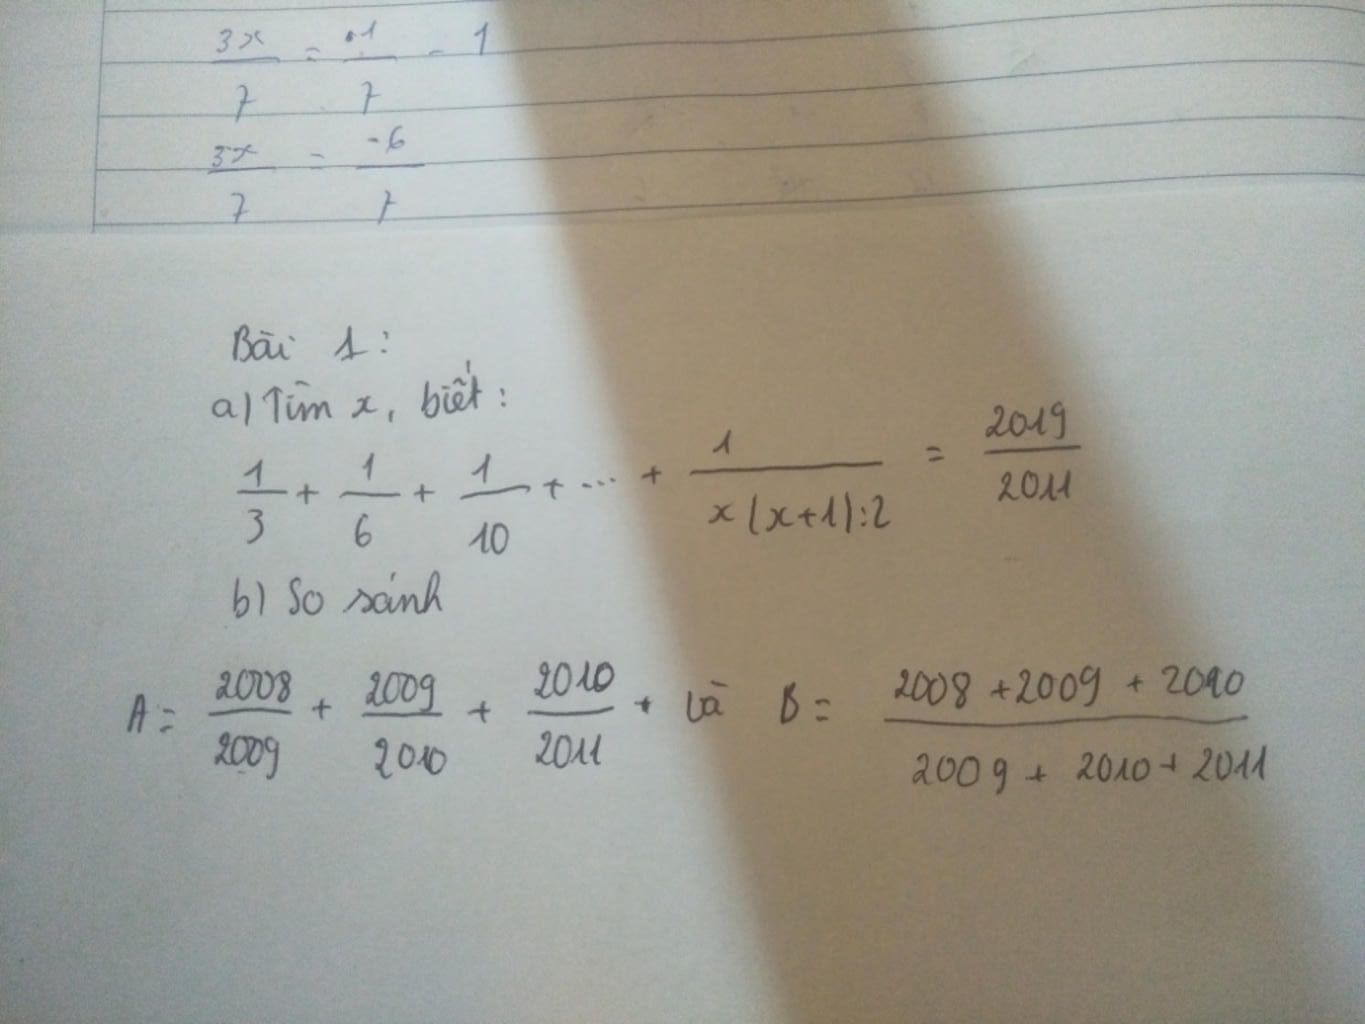 3x/7 = 1/7 - 1
3x/7 = -6/7
Bài 1:
a) Tìm x, biết:
1/3 + 1/6 + 1/10 + ... + 1/x(x+1):2 = 2019/2011
b) So sánh
A = 2008/2009 + 2009/2010 + 2010/2011 + và B = 2008 + 2009 + 2010/2009 + 2010 + 2011